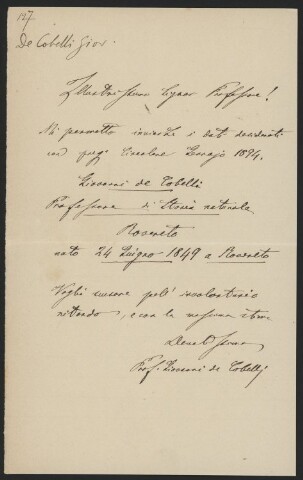 127
De Cobelli Giov.
Illustrissimo Signor Professore!
Mi permetto inviarle i dati desiderati
Circolare Gennajo 1894.
Giovanni de Cobelli
Professore di Storia naturale
Rovereto
nato 24 Giugno 1849 a Rovereto
Voglia pel involontario
ritardo, e con la massima stima
Devotissimo
Prof. Giovanni de Cobelli